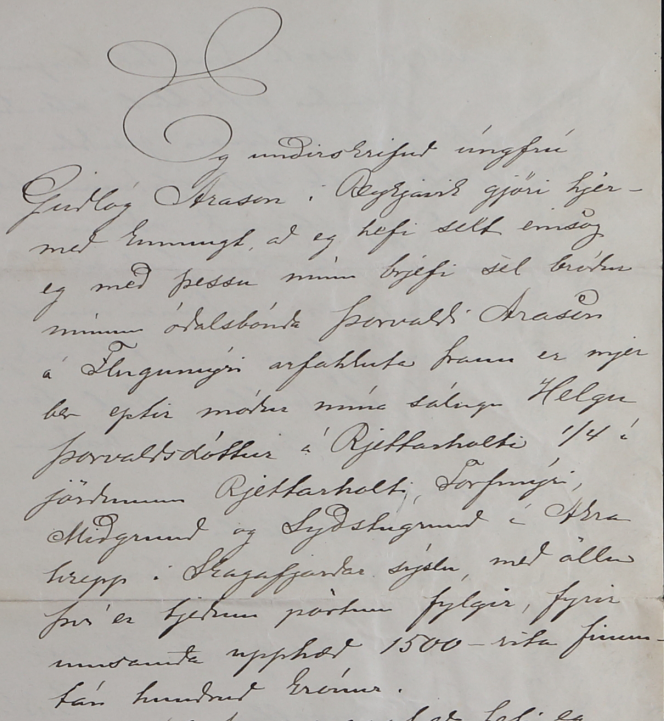 Eg undirskrifud úngfrú
Gudlög Arason í Reykjavik gjöri hjer-
með kunnugt, að eg hefi selt einsog
eg með þessu mínu brjefi sel bróður
mínum óðalsbónda Þorvaldi Arasön
á Flugumýri arfahluta þann er mjer
ber eptir móður mína sálugu Helgu
Þorvaldsdóttur á Rjettarholti 1/4 í
jörðunum Rjettarholti, Torfmýri,
Miðgrund og Syðstugrund í Akra
hrepp í Skagafjarðar sýslu, með öllu
því er tjeðum pörtum fylgir, fyrir
umsamda upphæð 1500 - rita fimm-
tán hundruð krónur.